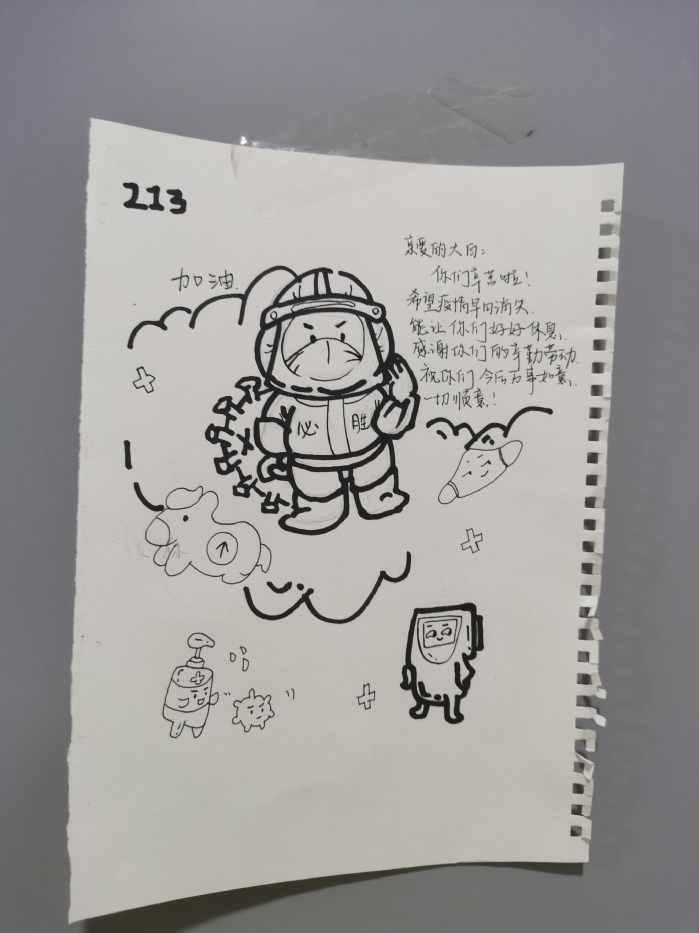 213
加油.
亲爱的大白:
你们辛苦啦!
希望疫情早日消失.
能让你们好好休息.
感谢你们的辛勤劳动.
祝你们今后万事如意.
一切顺意!
必胜